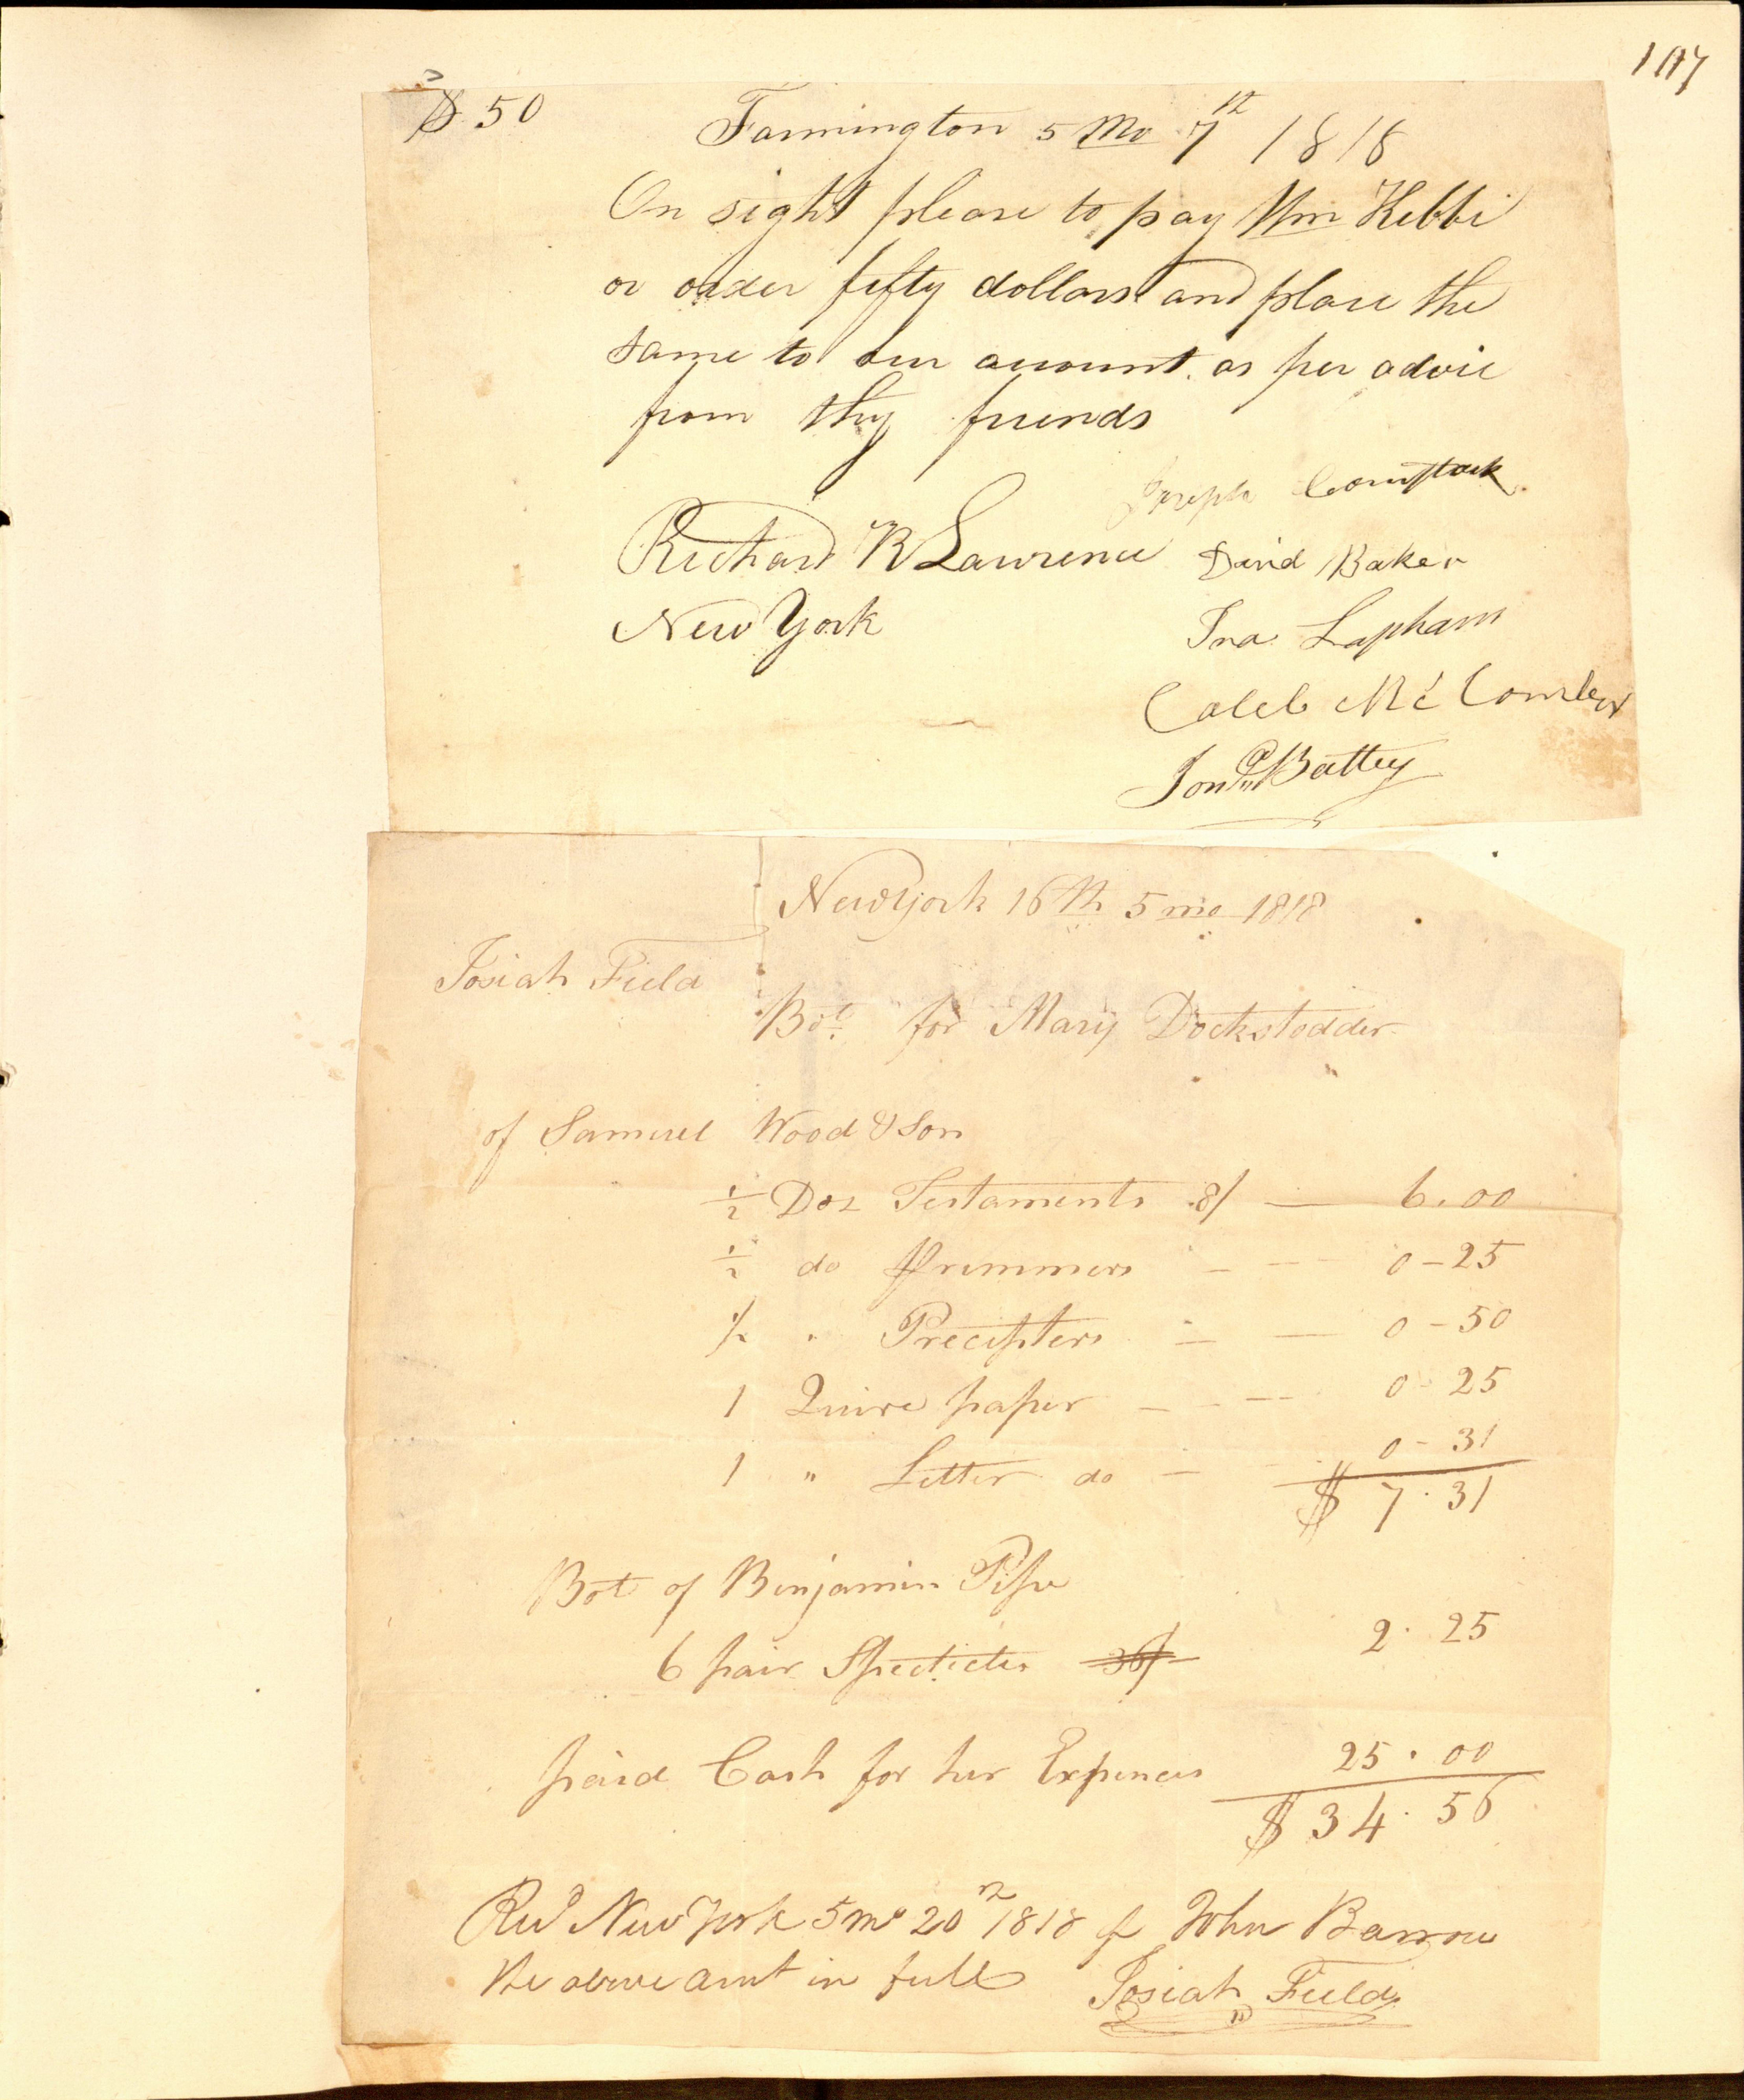 107
$ 50
Farmington 5 Mo 7th 1818
On sight please to pay Wm Kibbi
or order fifty dollars and place the
same to our account as per advice
from thy friends
Joseph Comstock
Richard R Lawrence David Baker
New York Ira Lapham
Caleb Mc Comber
Jonan Battey
New York 16th 5 mo 1818
Josiah Field
Bot for Mary Dockstodder
of Samuel Wood & Son
1/2 Doz Testaments 8/ — 6.00
1/2 do Primmers - - - 0-25
1/2 " Precepters - - 0-50
1 Quire paper - - - 0-25
1 " Letter do - 0-31
$ 7.31
Bot of Benjamin Pike
6 pair Specticles 36/ 2.25
paid Cash for her Expences 25.00
$ 34.56
Recd New York 5 mo 20th 1818 of John Barrow
the above amt in full Josiah Field